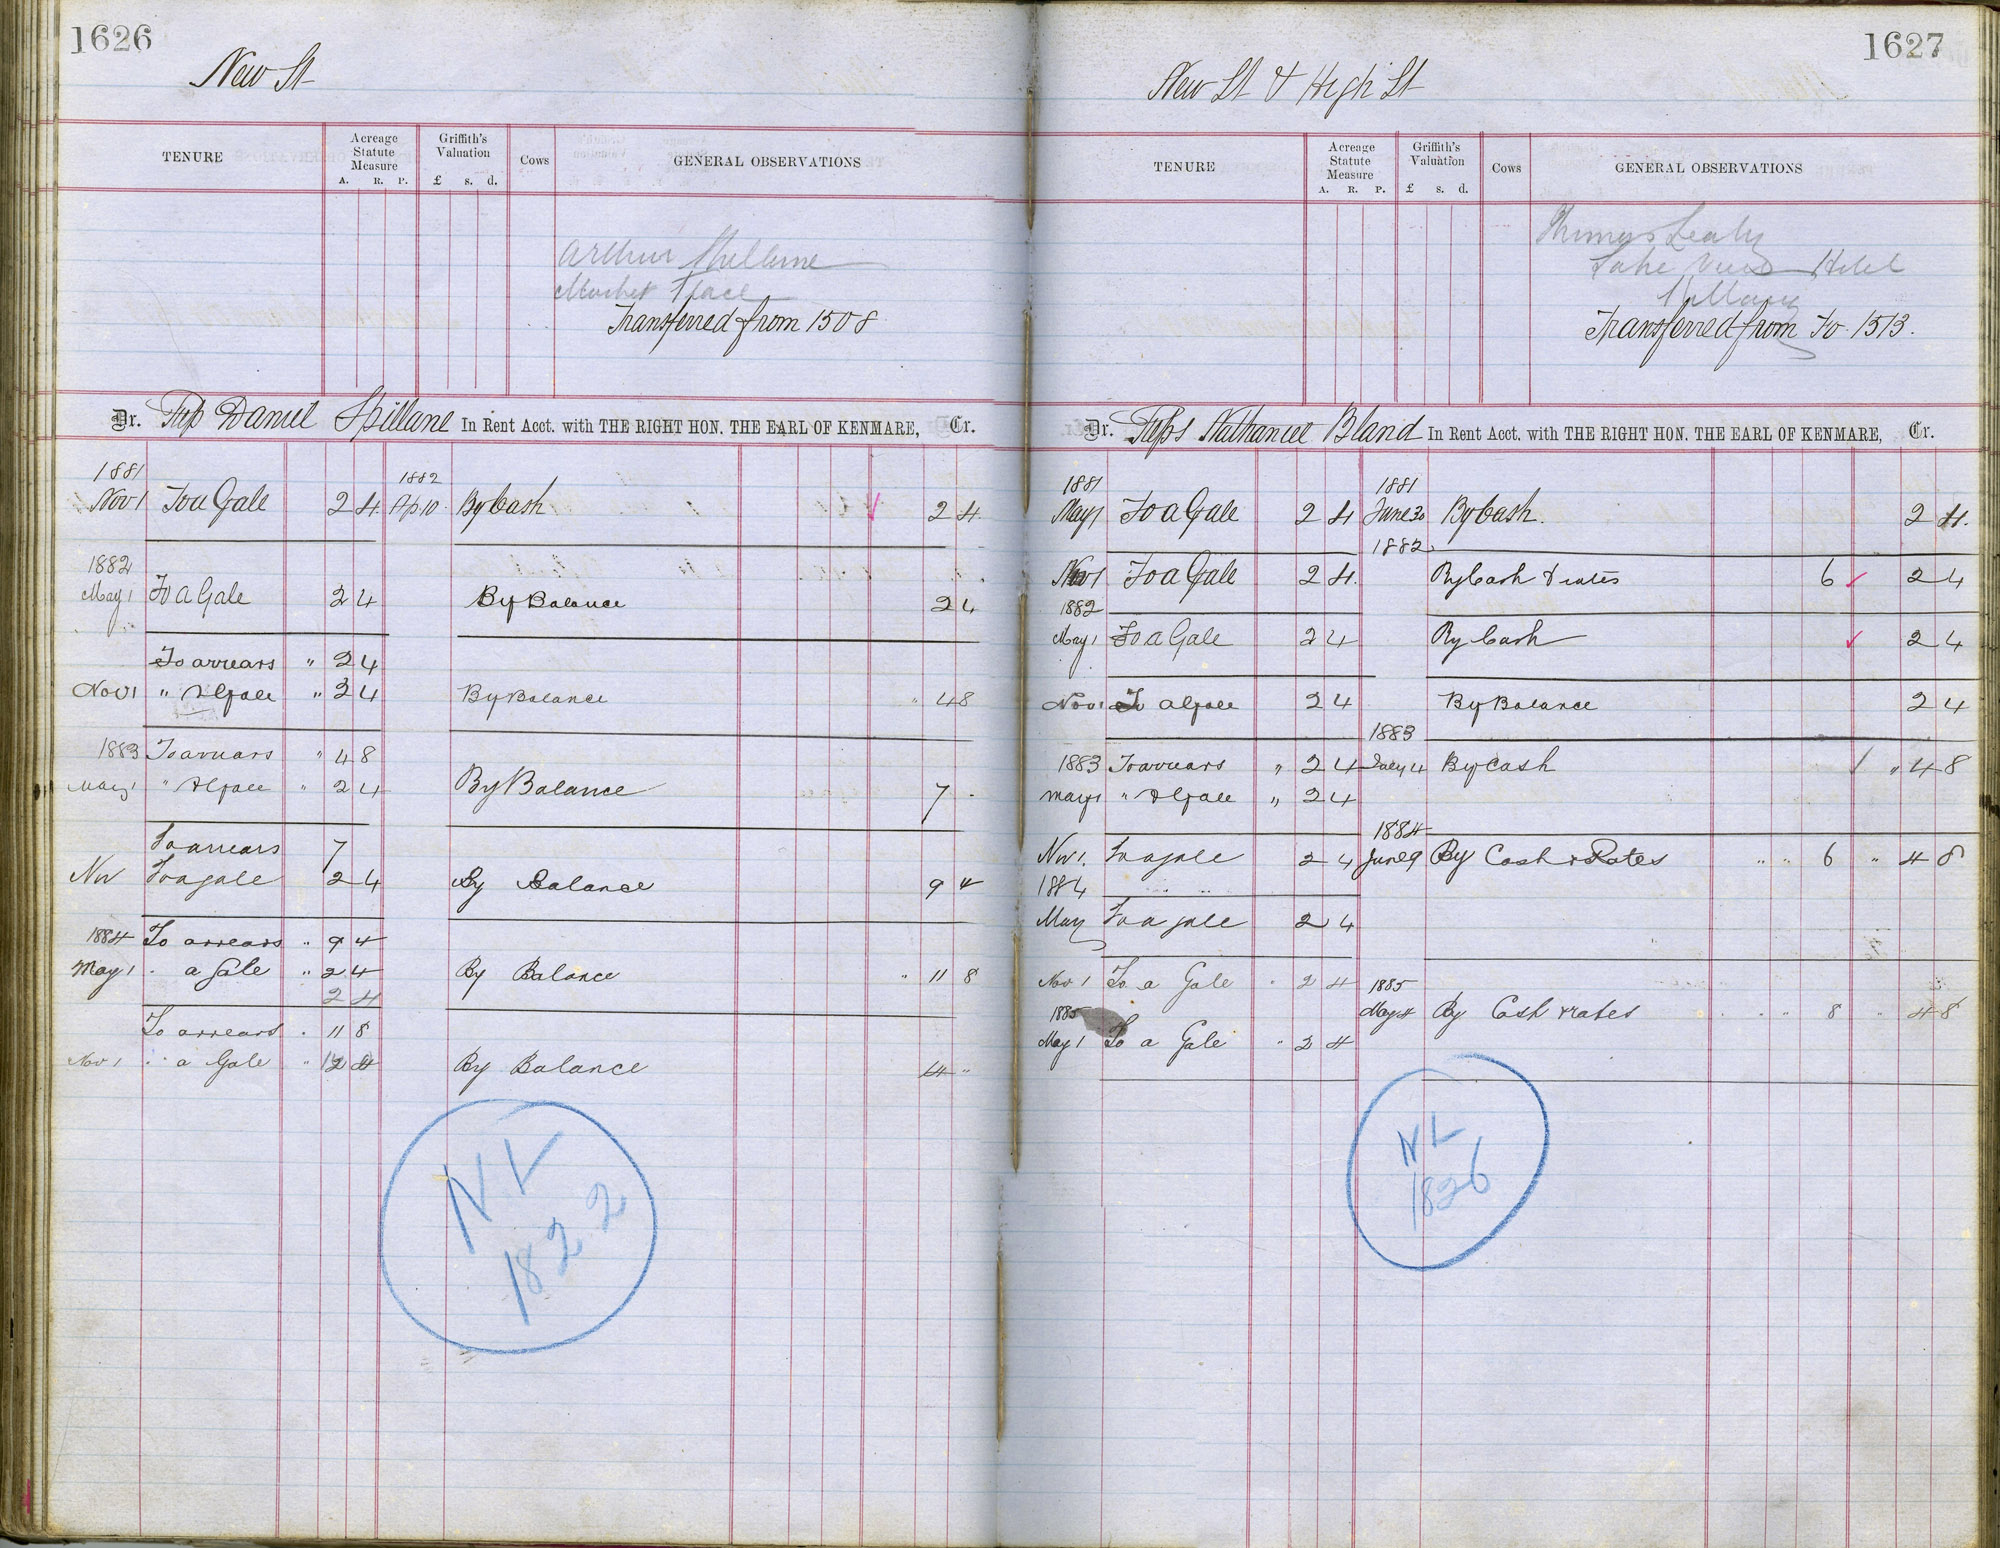 1626
New St
TENURE
Acreage Statute Measure
A. R. P.
Griffith's Valuation
£ s. d.
Cows
GENERAL OBSERVATIONS
Arthur Spillane
Market Place
Transferred from 1508
Dr. Daniel Spillane In Rent Acct. with THE RIGHT HON. THE EARL OF KENMARE, Cr.
1881 1882
Nov 1 To a Gale 2 4 Ap 10 By Cash 2 4
1882
May 1 To a Gale 2 4 By Balance 2 4
To arrears " 2 4
Nov 1 " a Gale " 2 4 By Balance " 4 8
1883 To arrears " 4 8
May 1 " a Gale " 2 4 By Balance 7 -
To arrears 7
Nov To a gale 2 4 By Balance 9 4
1884 To arrears " 9 4
May 1 " a Gale " 2 4 By Balance " 11 8
2 4
To arrears " 11 8
Nov 1 " a Gale " 2 4 By Balance 14 "
NL
1822
1627
New St & High St
TENURE
Acreage Statute Measure
A. R. P.
Griffith's Valuation
£ s. d.
Cows
GENERAL OBSERVATIONS
Thomas Leahy
Lake View Hotel
Transferred from Fo 1513.
Dr. Nathaniel Bland In Rent Acct. with THE RIGHT HON. THE EARL OF KENMARE, Cr.
1881 1881
May 1 To a Gale 2 4 June 30 By Cash. 2 4.
1882
Nov 1 To a Gale 2 4. By Cash & rates 6 2 4
1882
May 1 To a Gale 2 4 By Cash 2 4
Nov 1 To a Gale 2 4 By Balance 2 4
1883
1883 To arrears " 2 4 July 4 By Cash " 4 8
May 1 " a Gale " 2 4
1884
Nov 1. To a gale 2 4 June 9 By Cash & Rates " " 6 " 4 8
1884
May To a gale 2 4
Nov 1 To a Gale " 2 4 1885
1885 May 4 By Cash & rates 8 " 4 8
May 1 To a Gale " 2 4
NL
1826